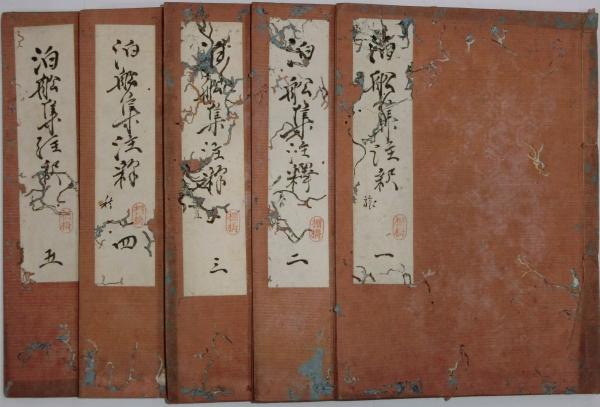 泊船集註釈 一
泊船集注釋 二
泊船集注釋 三
泊船集注釋 四
泊船集註釈 五